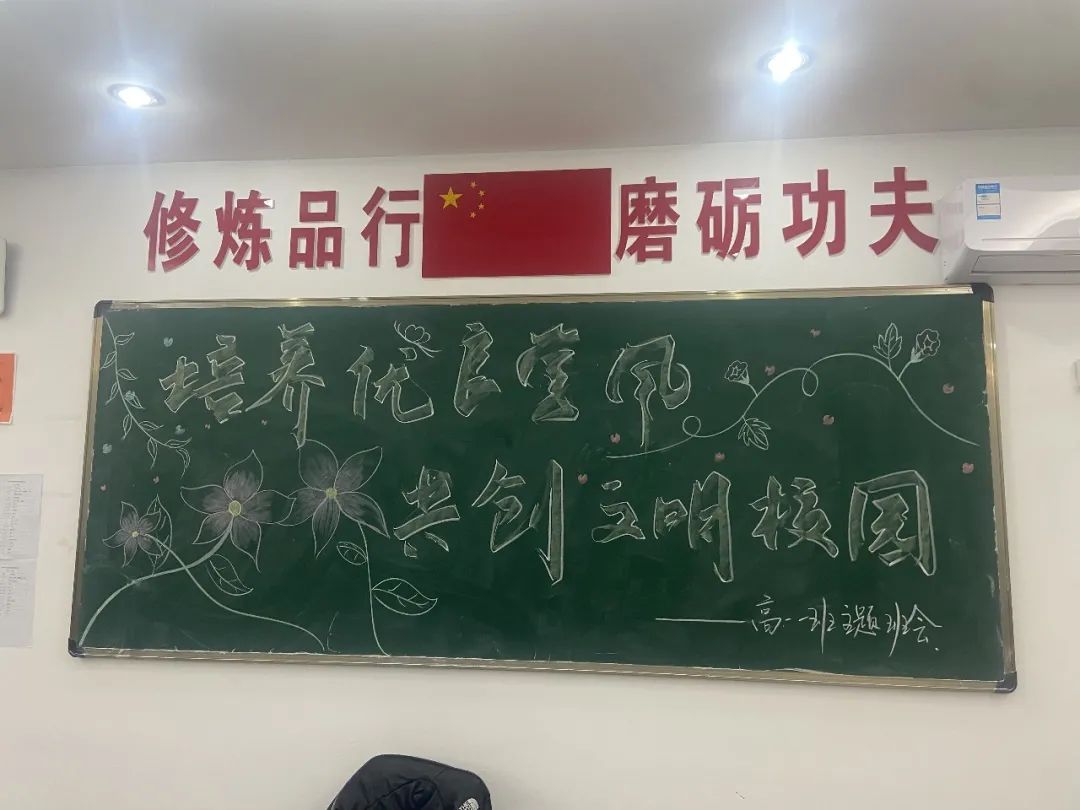 修炼品行 磨砺功夫
培养优良学风
共创文明校园
——高一班主题班会